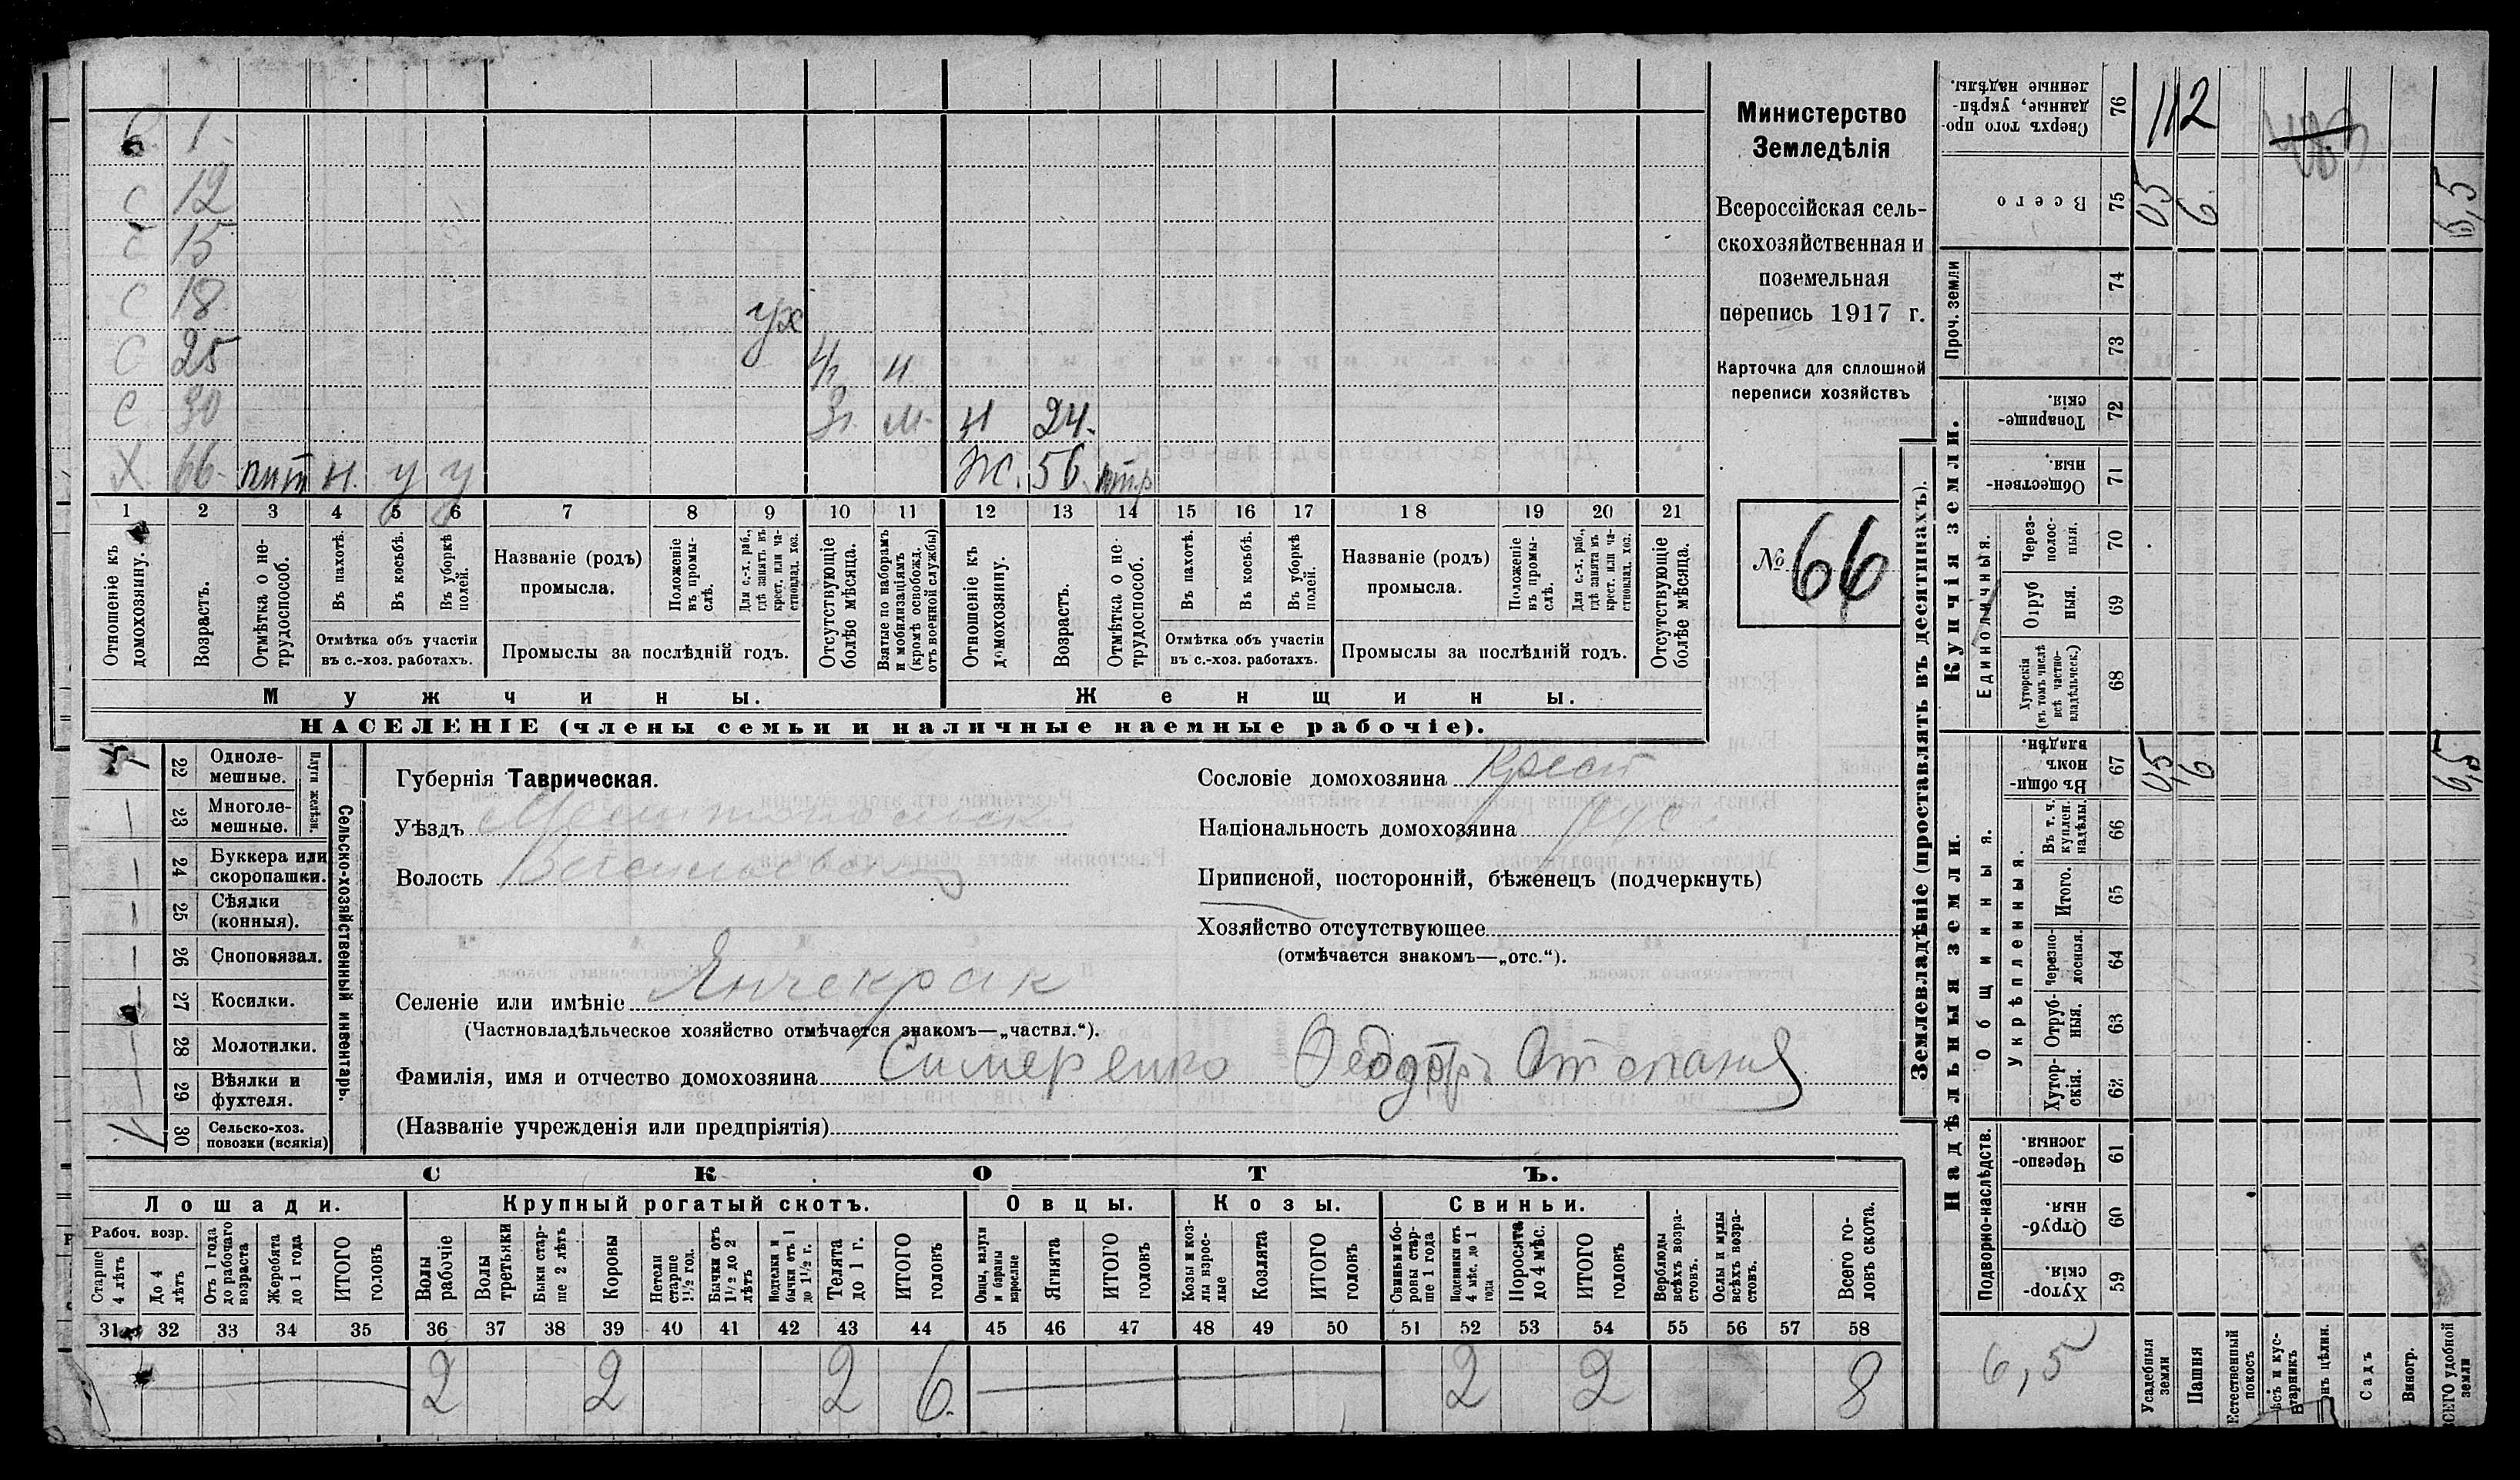 В. 1.
С 12
С 15
С 18
С 25 ух Н. Н.
С 30 Зп. М. Н 24.
Х 66. Н. У У Ж. 56.
1 2 3 4 5 6 7 8 9 10 11 12 13 14 15 16 17 18 19 20 21
Отношеніе къ домохозяину.
Возрастъ.
Отмѣтка о не-трудоспособ.
Въ пахотѣ.
Въ косьбѣ.
Въ уборкѣ полей.
Отмѣтка объ участіи въ с.-хоз. работахъ.
Названіе (родъ) промысла.
Положеніе въ промы-слѣ.
Для с.-х. раб., гдѣ занятъ въ крест. или ча-стновлад. хоз.
Промыслы за послѣдній годъ.
Отсутствующіе болѣе мѣсяца.
Взятые по наборамъ и мобилизаціямъ (кромѣ освобожд. отъ военной службы)
Отношеніе къ домохозяину.
Возрастъ.
Отмѣтка о не-трудоспособ.
Въ пахотѣ.
Въ косьбѣ.
Въ уборкѣ полей.
Отмѣтка объ участіи въ с.-хоз. работахъ.
Названіе (родъ) промысла.
Положеніе въ промы-слѣ.
Для с.-х. раб., гдѣ занятъ въ крест. или ча-стновлад. хоз.
Промыслы за послѣдній годъ.
Отсутствующіе болѣе мѣсяца.
Мужчины. Женщины.
НАСЕЛЕНІЕ (члены семьи и наличные наемные рабочіе).
Министерство
Земледѣлія
Всероссійская сель-
скохозяйственная и
поземельная
перепись 1917 г.
Карточка для сплошной
переписи хозяйствъ
№ 66
Сельско-хозяйственный инвентарь.
Плуги желѣзн.
22 Одноле-мешные.
23 Многоле-мешные.
24 Буккера или скоропашки.
25 Сѣялки (конныя).
26 Сноповязал.
27 Косилки.
28 Молотилки.
29 Вѣялки и фухтеля.
30 Сельско-хоз. повозки (всякія)
Губернія Таврическая.
Уѣздъ Мелитопольск
Волость Веселовская
Сословіе домохозяина крест
Національность домохозяина рус.
Приписной, посторонній, бѣженецъ (подчеркнуть)
Хозяйство отсутствующее
(отмѣчается знакомъ—„отс.“).
Селеніе или имѣніе Янчекрак
(Частновладѣльческое хозяйство отмѣчается знакомъ—„частвл.“).
Фамилія, имя и отчество домохозяина Симеренко Ѳеодоръ
(Названіе учрежденія или предпріятія)
СКОТЪ.
Лошади. Крупный рогатый скотъ. Овцы. Козы. Свиньи.
Рабоч. возр.
Старше 4 лѣтъ
До 4 лѣтъ
Отъ 1 года до рабочаго возраста
Жеребята до 1 года
ИТОГО головъ
Волы рабочіе
Волы третьяки
Быки стар-ше 2 лѣтъ
Коровы
Нетели старше 1½ год.
Бычки отъ 1½ до 2 лѣтъ
Подтелки и бычки отъ 1 до 1½ г.
Телята до 1 г.
ИТОГО головъ
Овцы, валухи и бараны взрослые
Ягнята
ИТОГО головъ
Козы и коз-лы взрос-лые
Козлята
ИТОГО головъ
Свиньи и бо-ровы стар-ше 1 года
Подсвинки отъ 4 мѣс. до 1 года
Поросята до 4 мѣс.
ИТОГО головъ
Верблюды всѣхъ возра-стовъ.
Ослы и мулы всѣхъ возра-стовъ.
Всего го-ловъ скота.
31 32 33 34 35 36 37 38 39 40 41 42 43 44 45 46 47 48 49 50 51 52 53 54 55 56 57 58
2 2 2 6. 2 2 8
Землевладѣніе (проставлять въ десятинахъ).
Купчія земли.
Надѣльныя земли.
76 Сверхъ того про-данные, укрѣп-ленные надѣлы. 112
75 Всего 05 6. 6,5
Проч. земли
74
73
72 Товарище-скія.
71 Обществен-ныя.
Единоличныя.
70 Через-полос-ныя.
69 Отруб ныя.
68 Хуторскія (въ томъ числѣ всѣ частно-владѣльческ.)
Общинныя.
67 Въ общин-номъ владѣн. 0,5 6 6,5
Укрѣпленныя.
66 Въ т. ч. куплен. надѣлы.
65 Итого.
64 Черезпо-лосныя.
63 Отруб-ныя.
62 Хутор-скія.
Подворно-наслѣдств.
61 Черезпо-лосныя.
60 Отруб-ныя.
59 Хутор-скія.
6,5
Усадебныя земли
Пашня
Естественный покосъ
Садъ
Виногр.
ВСЕГО удобной земли